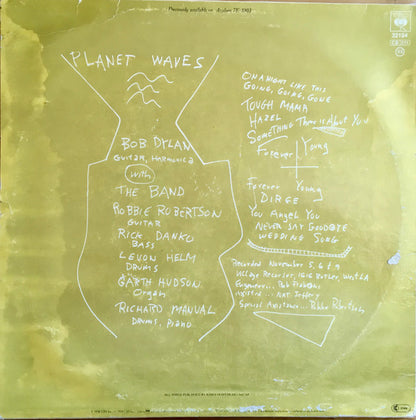 Previously available on Asylum 7E-1003
CBS
32154
PLANET WAVES
BOB DYLAN
GUITAR, HARMONICA
With
THE BAND
ROBBIE ROBERTSON
GUITAR
RICK DANKO
BASS
LEVON HELM
DRUMS
GARTH HUDSON
Organ
RICHARD MANUAL
DRUMS, Piano
ON A NIGHT LIKE THIS
GOING, GOING, GONE
TOUGH MAMA
HAZEL
SOMETHING There is About You
Forever Young
Forever Young
DIRGE
You Angel You
NEVER SAY GOODBYE
WEDDING SONG
Recorded November 5, 6 & 9
Village Recorder, 1616 Butler, West LA
Engineer... Rob Fraboni
Assisted... Nat Jeffery
Special Assistance... Robbie Robertson